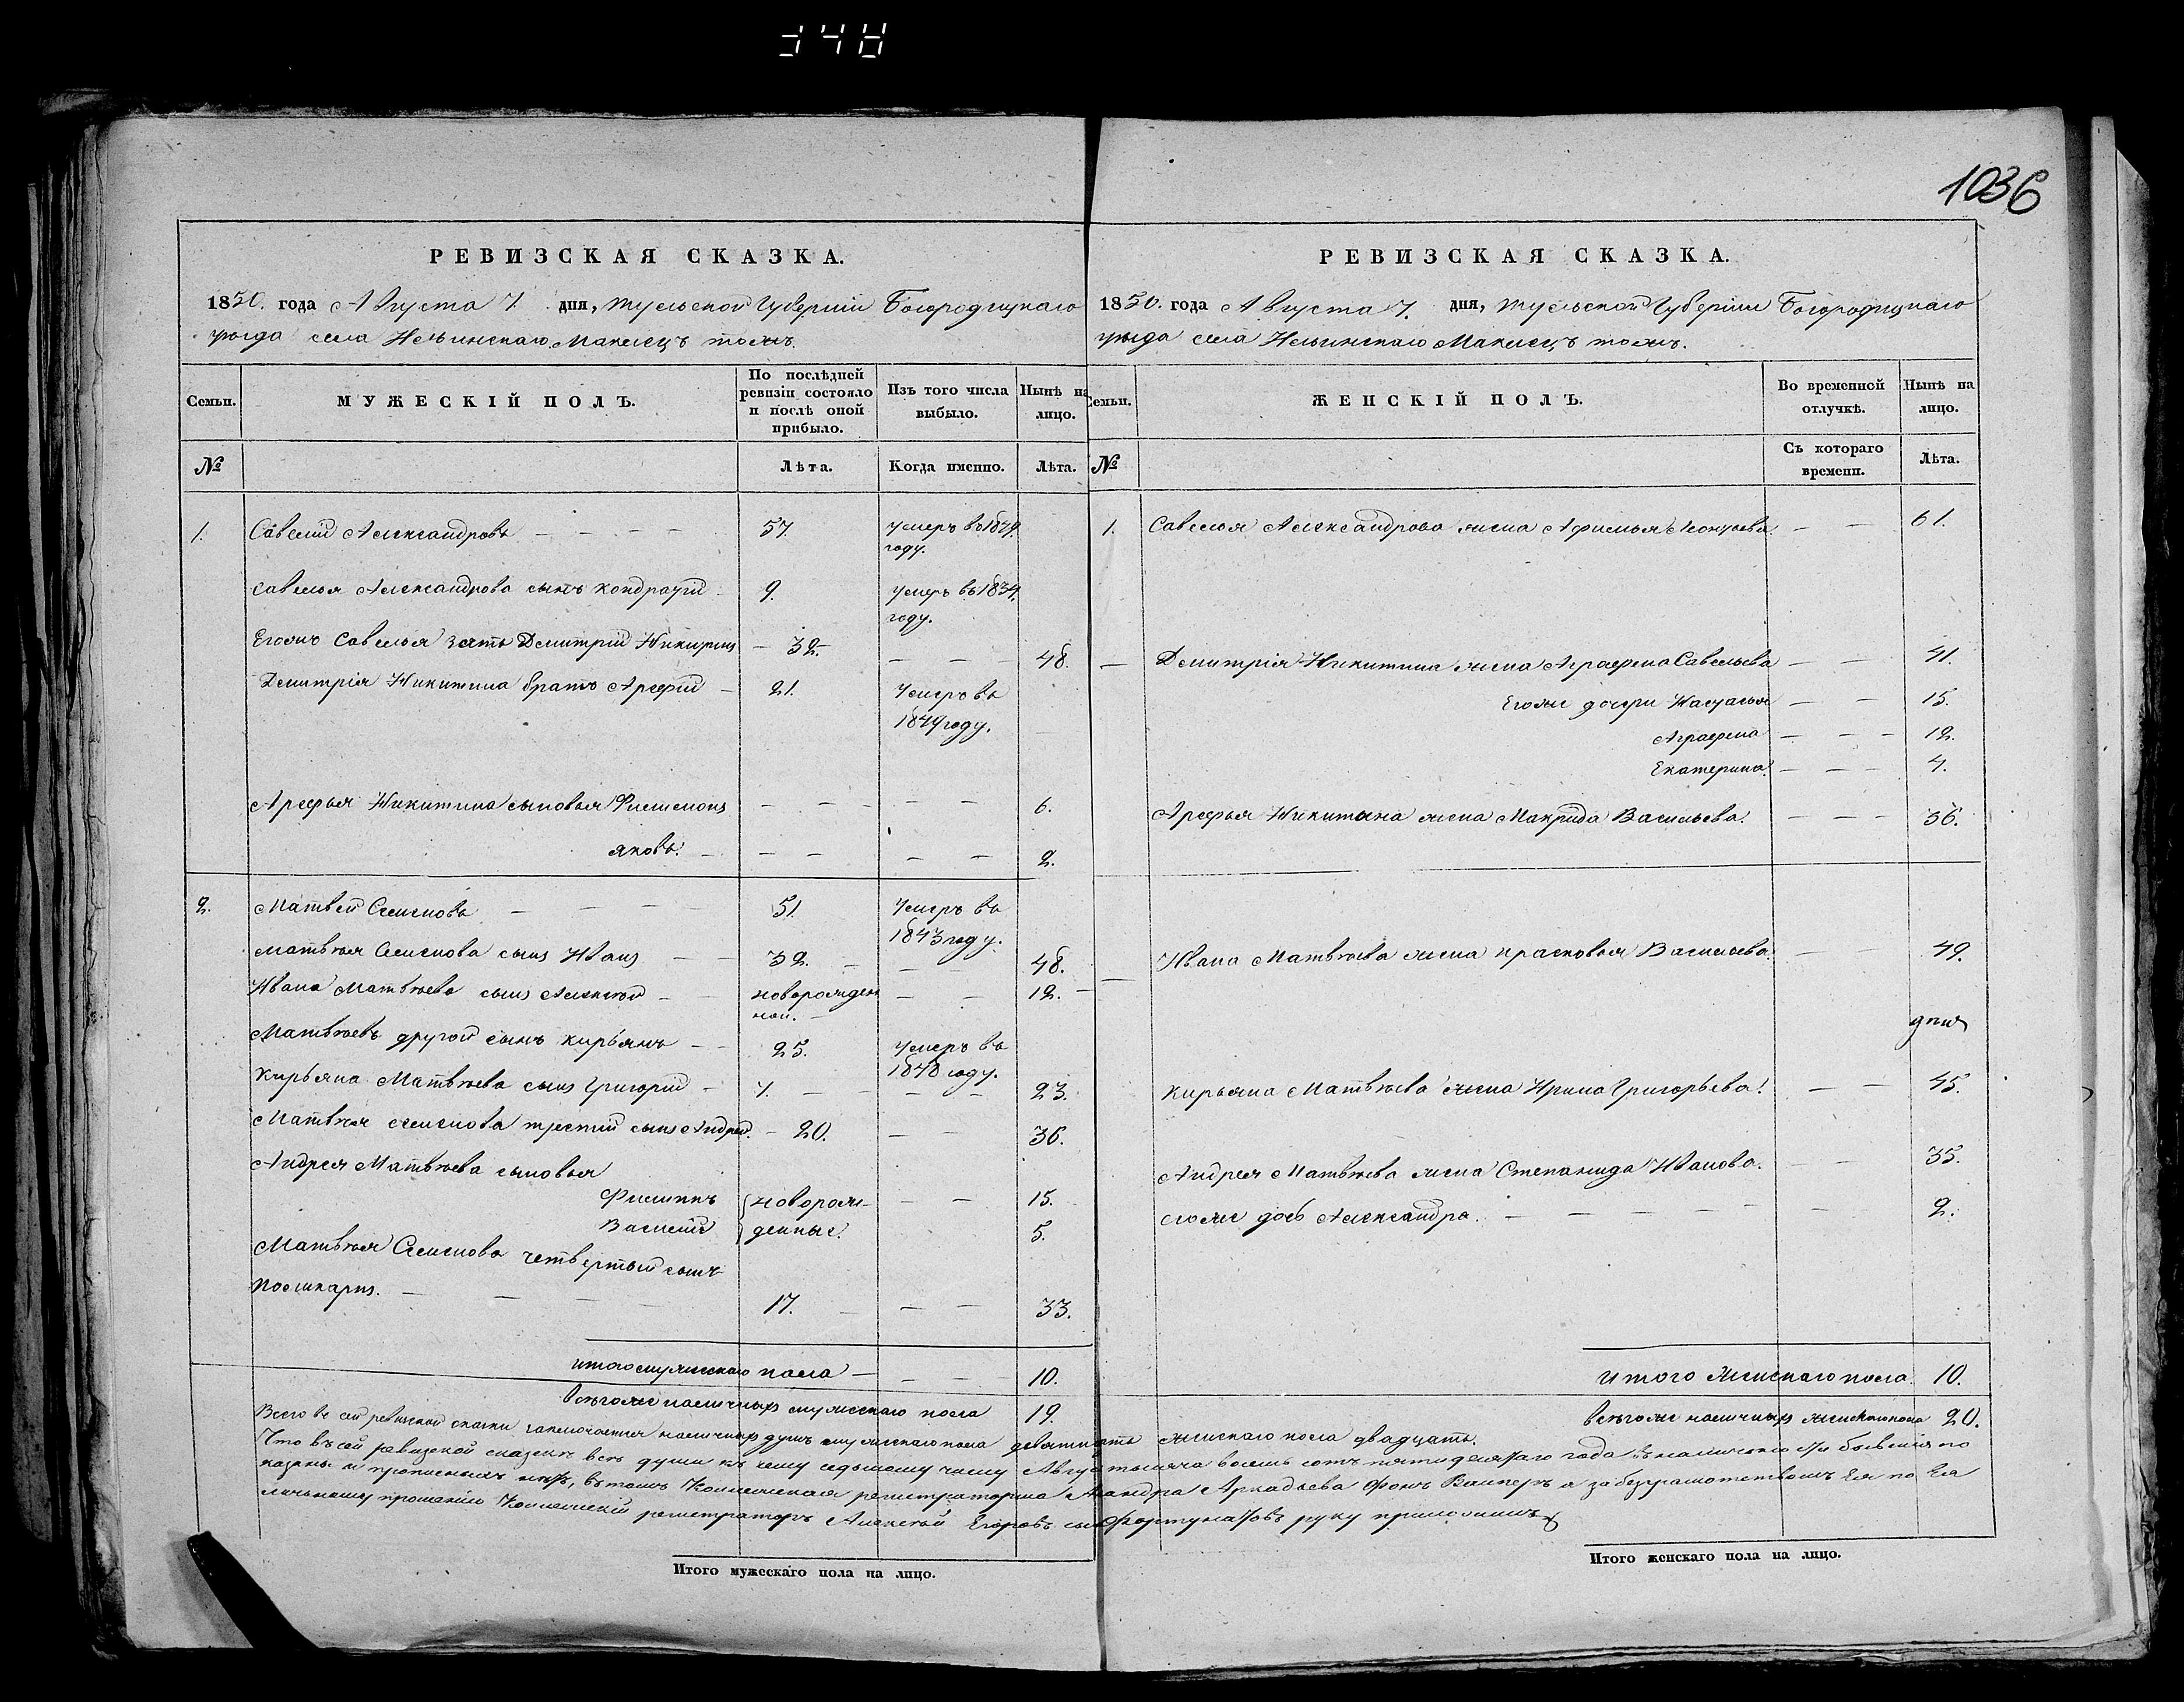 348
1036
РЕВИЗСКАЯ СКАЗКА.
1850. года Августа 7. дня, Тульской Губерніи Богородицкаго
уѣзда села Ильинскаго Малевцъ тожъ.
Семьи.
МУЖЕСКІЙ ПОЛЪ.
По послѣдней ревизіи состояло и послѣ оной прибыло.
Изъ того числа выбыло.
Нынѣ на лицо.
№
Лѣта.
Когда именно.
Лѣта.
1. Савелій Александровъ — — — — 57. умеръ въ 1849.
году.
Савелья Александрова сынъ Кондратій 9. умеръ въ 1834.
году.
Егожъ Савелья зять Дмитрій Никитинъ — 32. — — — 48.
Дмитрія Никитина братъ Арефій — 21. Умеръ въ
1849 году.
Арефья Никитина сыновья Филимонъ — — — — — 6.
Яковъ. — — — — — 2.
2. Матвей Семеновъ — — — — 51. Умеръ въ
1843 году.
Матвѣя Семенова сынъ Иванъ — — 32. — — — 48.
Ивана Матвѣева сынъ Алексѣй — — новорожден — — 12. —
ной. —
Матвѣевъ другой сынъ Кирьянъ — — 25. Умеръ въ
1848 году.
Кирьяна Матвѣева сынъ Григорій — 7. — — — 23.
Матвѣя Семенова третій сынъ Андрей. — 20. — — 36.
Андрея Матвѣева сыновья
Филиппъ новорож- — — 15.
Василій денные. 5.
Матвѣя Семенова четвертый сынъ
Поликарпъ. — — — — 17. — — — 33.
итого мужескаго пола — — — — 10.
всѣго же наличныхъ мужескаго пола 19.
РЕВИЗСКАЯ СКАЗКА.
1850. года Августа 7. дня, Тульской Губерніи Богородицкаго
уѣзда села Ильинскаго Малевцъ тожъ.
Семьи.
ЖЕНСКІЙ ПОЛЪ.
Во временной отлучкѣ.
Нынѣ на лицо.
№
Съ котораго времени.
Лѣта.
1. Савелья Александрова жена Афимья Леонтьева. — — 61.
— Дмитрія Никитина жена Аграфена Савельева — — 41.
Егожъ дочери Наталья — — 15.
Аграфена — — — 12.
Екатерина. — — — 4.
Арефья Никитина жена Макрида Васильева. — — — 36.
— Ивана Матвѣева жена Прасковья Васильева. — — 49.
Кирьяна Матвѣева жена Ирина Григорьева. — — 45.
Андрея Матвѣева жена Степанида Иванова. — — 35.
егоже дочь Александра. — — — — — — 2.
Итого Женскаго пола. 10.
всѣгоже наличныхъ женскаго пола 20.
Всего въ сей ревизской сказки заключается наличныхъ душъ мужескаго пола девятнать женскаго пола двадцать.
Что въ сей ревизской сказки всѣ души къ чему седьмому числу Августа тысяча восемь сотъ пятидесятаго года въ наличіи бывшія по
казаны и прописныхъ нѣтъ, въ томъ Колежская регистраторша Аркадьева Фонъ а за безграмотствомъ Ея по Ея
личному прошенію Колежскій регистраторъ Алексѣй Егоровъ сынъ Фортунатовъ руку приложилъ
Итого мужескаго пола на лицо.
Итого женскаго пола на лицо.